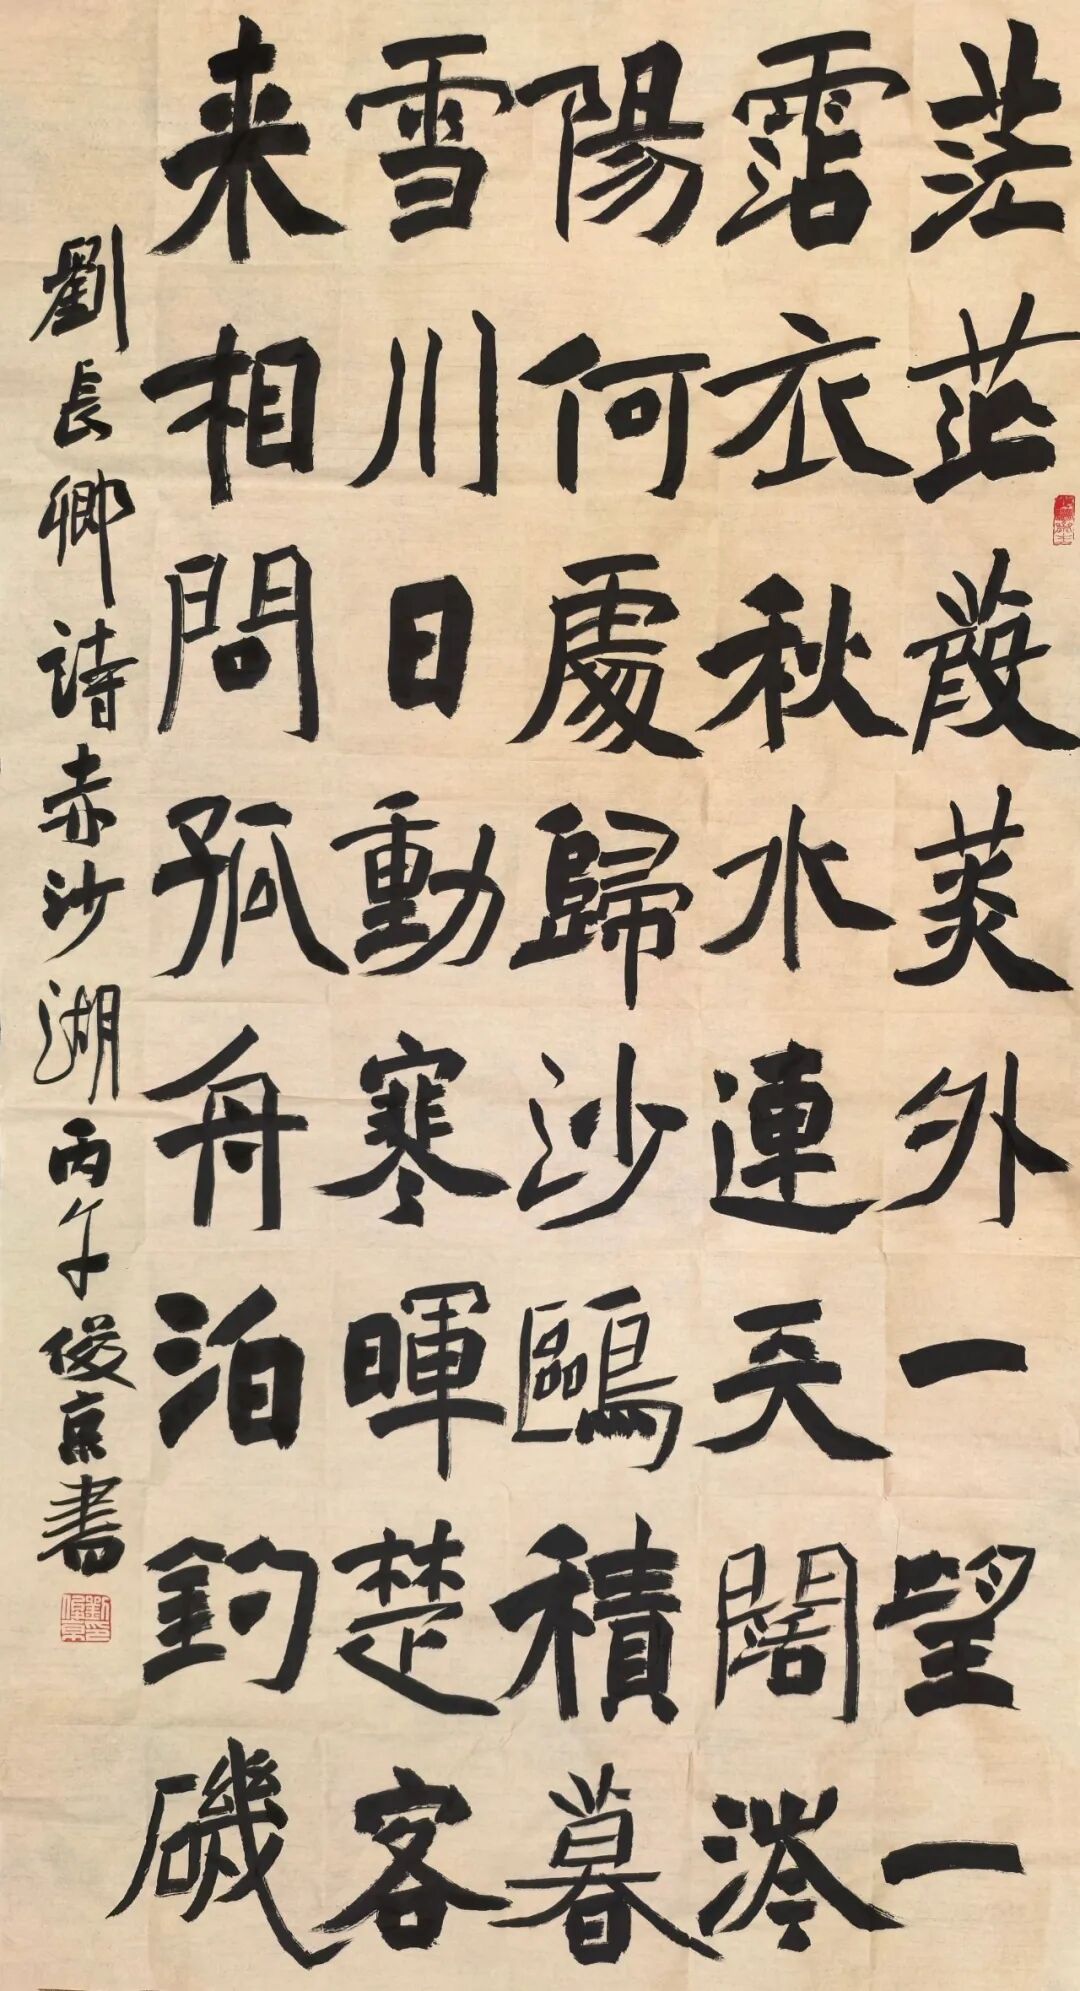 茫茫葭菼外一望一
霑衣秋水連天闊涔
陽何處歸沙鷗積暮
雪川日動寒暉楚客
来相問孤舟泊釣磯
劉長卿詩赤沙湖丙午俊京書